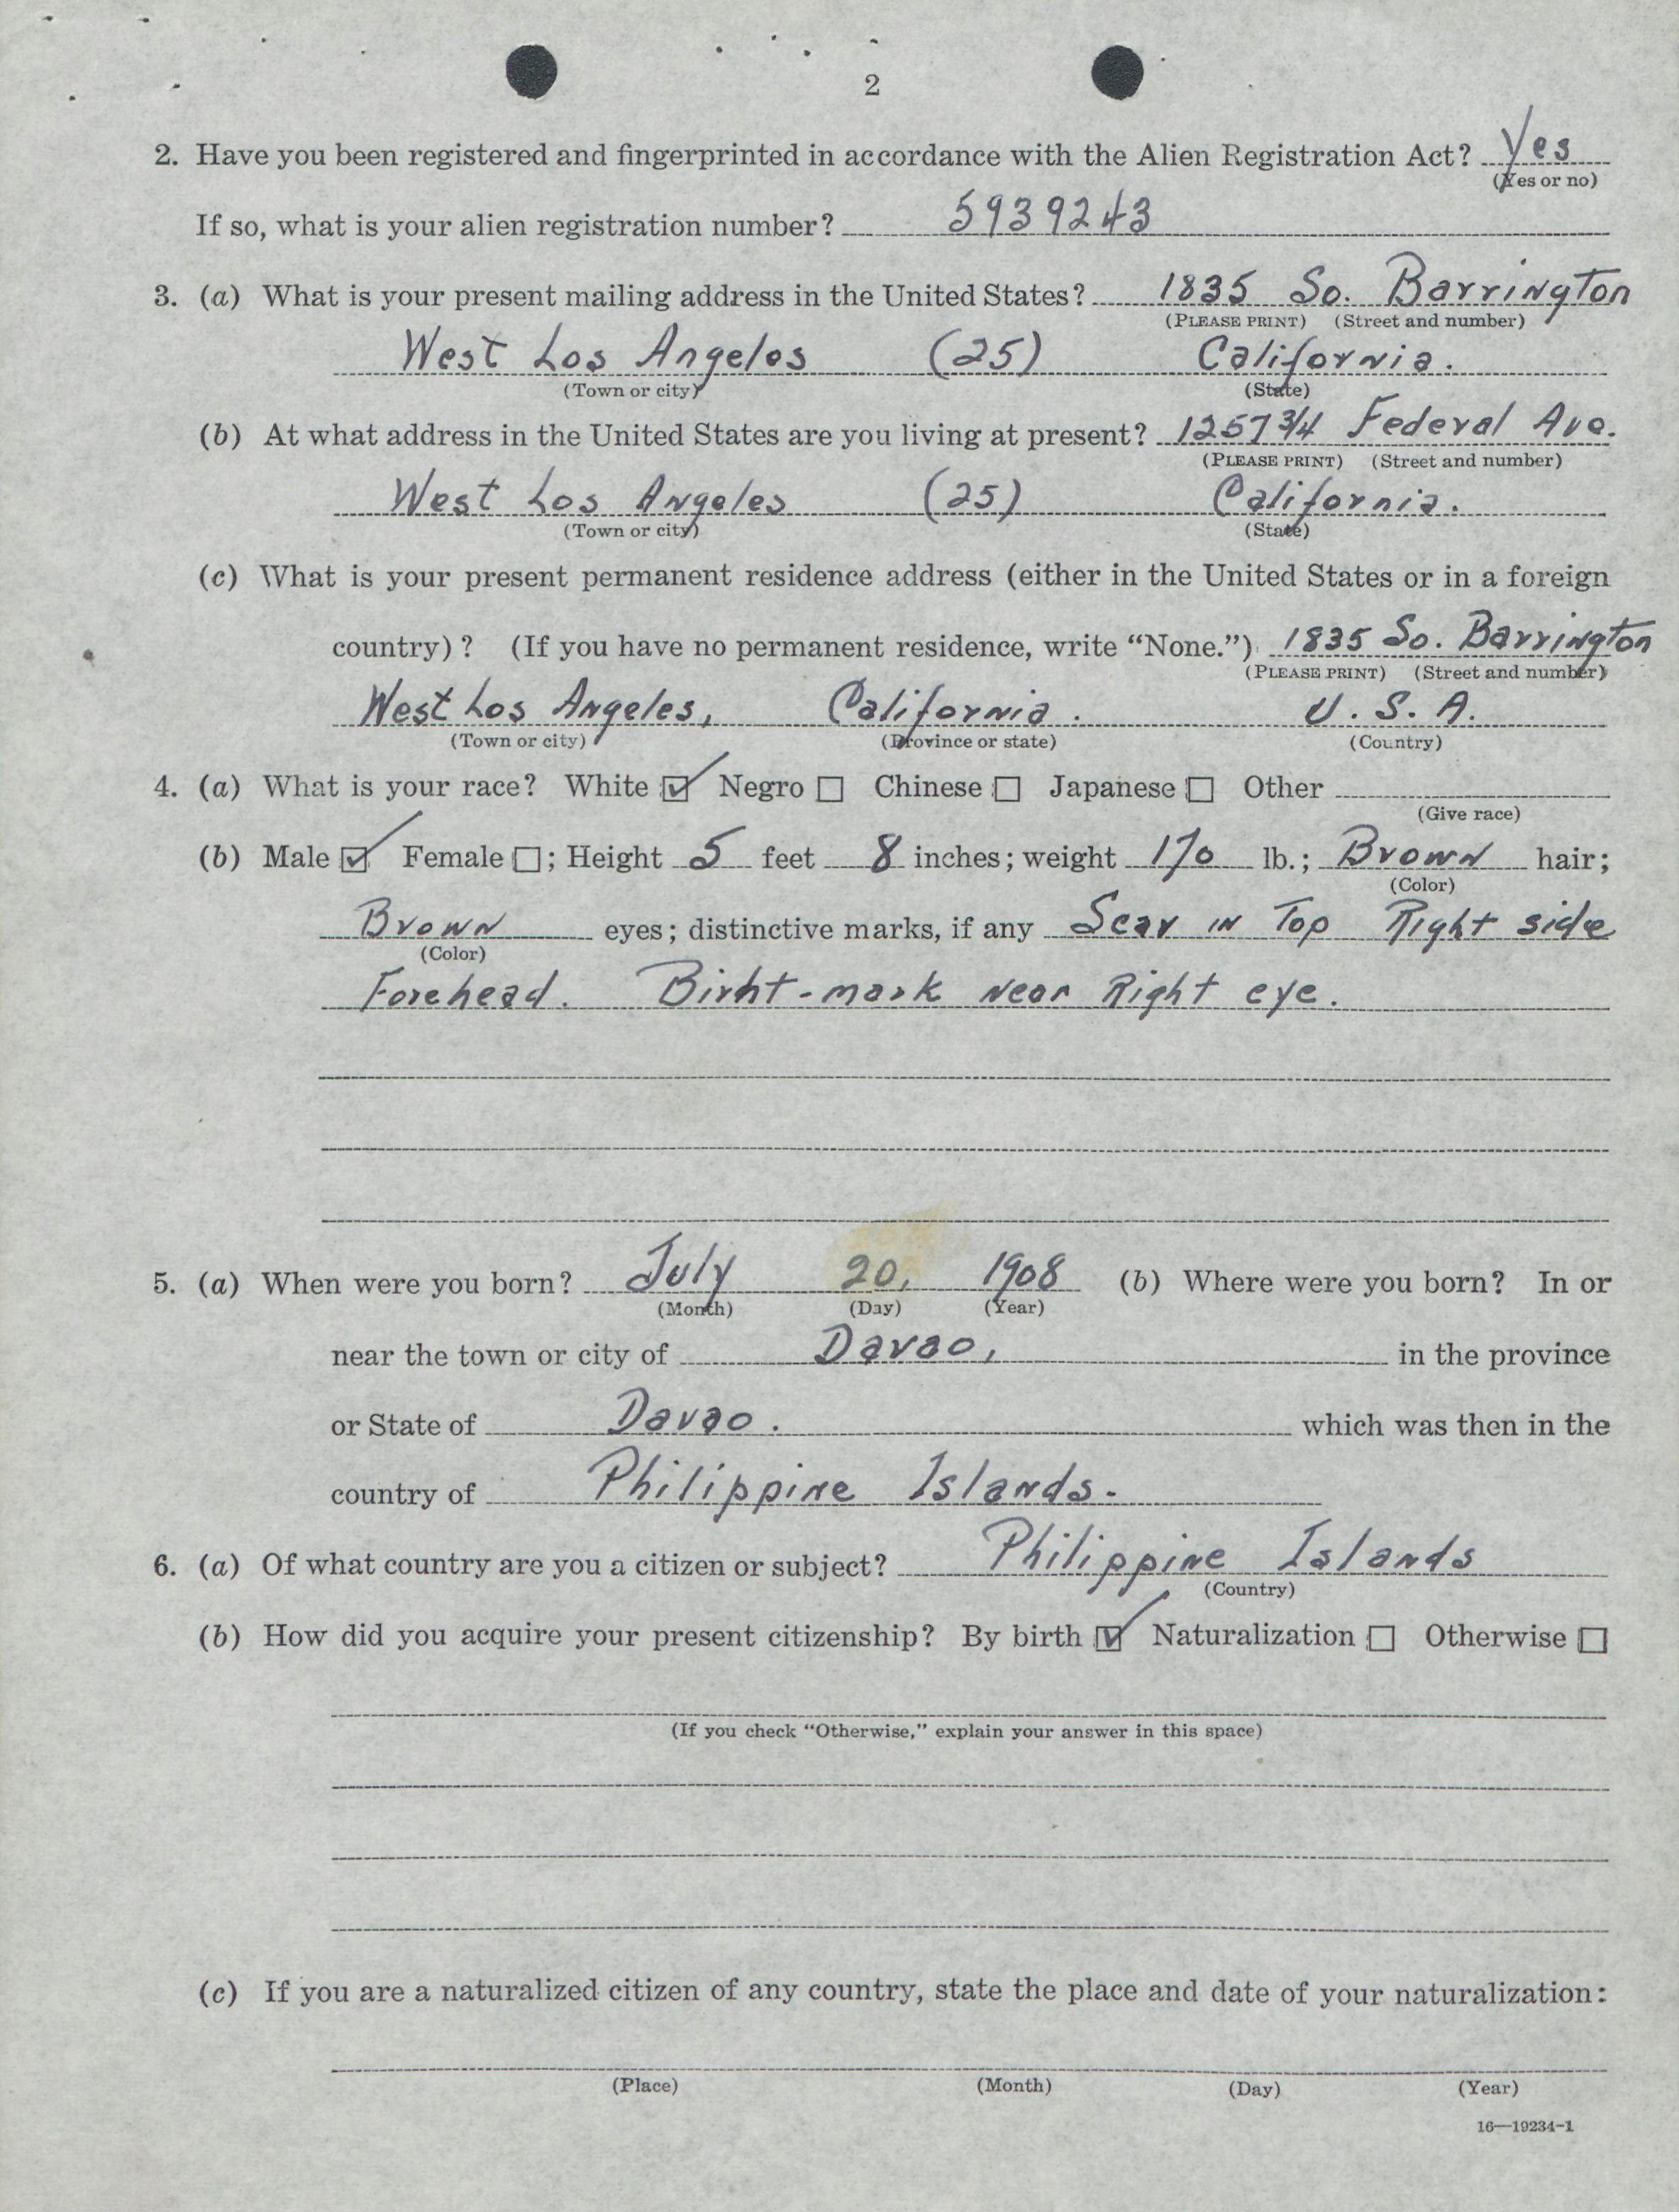 2
2. Have you been registered and fingerprinted in accordance with the Alien Registration Act? Yes
(Yes or no)
If so, what is your alien registration number? 5939243
3. (a) What is your present mailing address in the United States? 1835 So. Barrington
(PLEASE PRINT) (Street and number)
West Los Angeles (25) California.
(Town or city) (State)
(b) At what address in the United States are you living at present? 1257 3/4 Federal Ave.
(PLEASE PRINT) (Street and number)
West Los Angeles (25) California.
(Town or city) (State)
(c) What is your present permanent residence address (either in the United States or in a foreign
country)? (If you have no permanent residence, write “None.”) 1835 So. Barrington
(PLEASE PRINT) (Street and number)
West Los Angeles, California. U.S.A.
(Town or city) (Province or state) (Country)
4. (a) What is your race? White ☑ Negro ☐ Chinese ☐ Japanese ☐ Other
(Give race)
(b) Male ☑ Female ☐; Height 5 feet 8 inches; weight 170 lb.; Brown hair;
(Color)
Brown eyes; distinctive marks, if any Scar in Top Right side
(Color)
Forehead. Birht-mark near Right eye.
5. (a) When were you born? July 20, 1908 (b) Where were you born? In or
(Month) (Day) (Year)
near the town or city of Davao, in the province
or State of Davao. which was then in the
country of Philippine Islands.
6. (a) Of what country are you a citizen or subject? Philippine Islands
(Country)
(b) How did you acquire your present citizenship? By birth ☑ Naturalization ☐ Otherwise ☐
(If you check “Otherwise,” explain your answer in this space)
(c) If you are a naturalized citizen of any country, state the place and date of your naturalization:
(Place) (Month) (Day) (Year)
16—19234-1